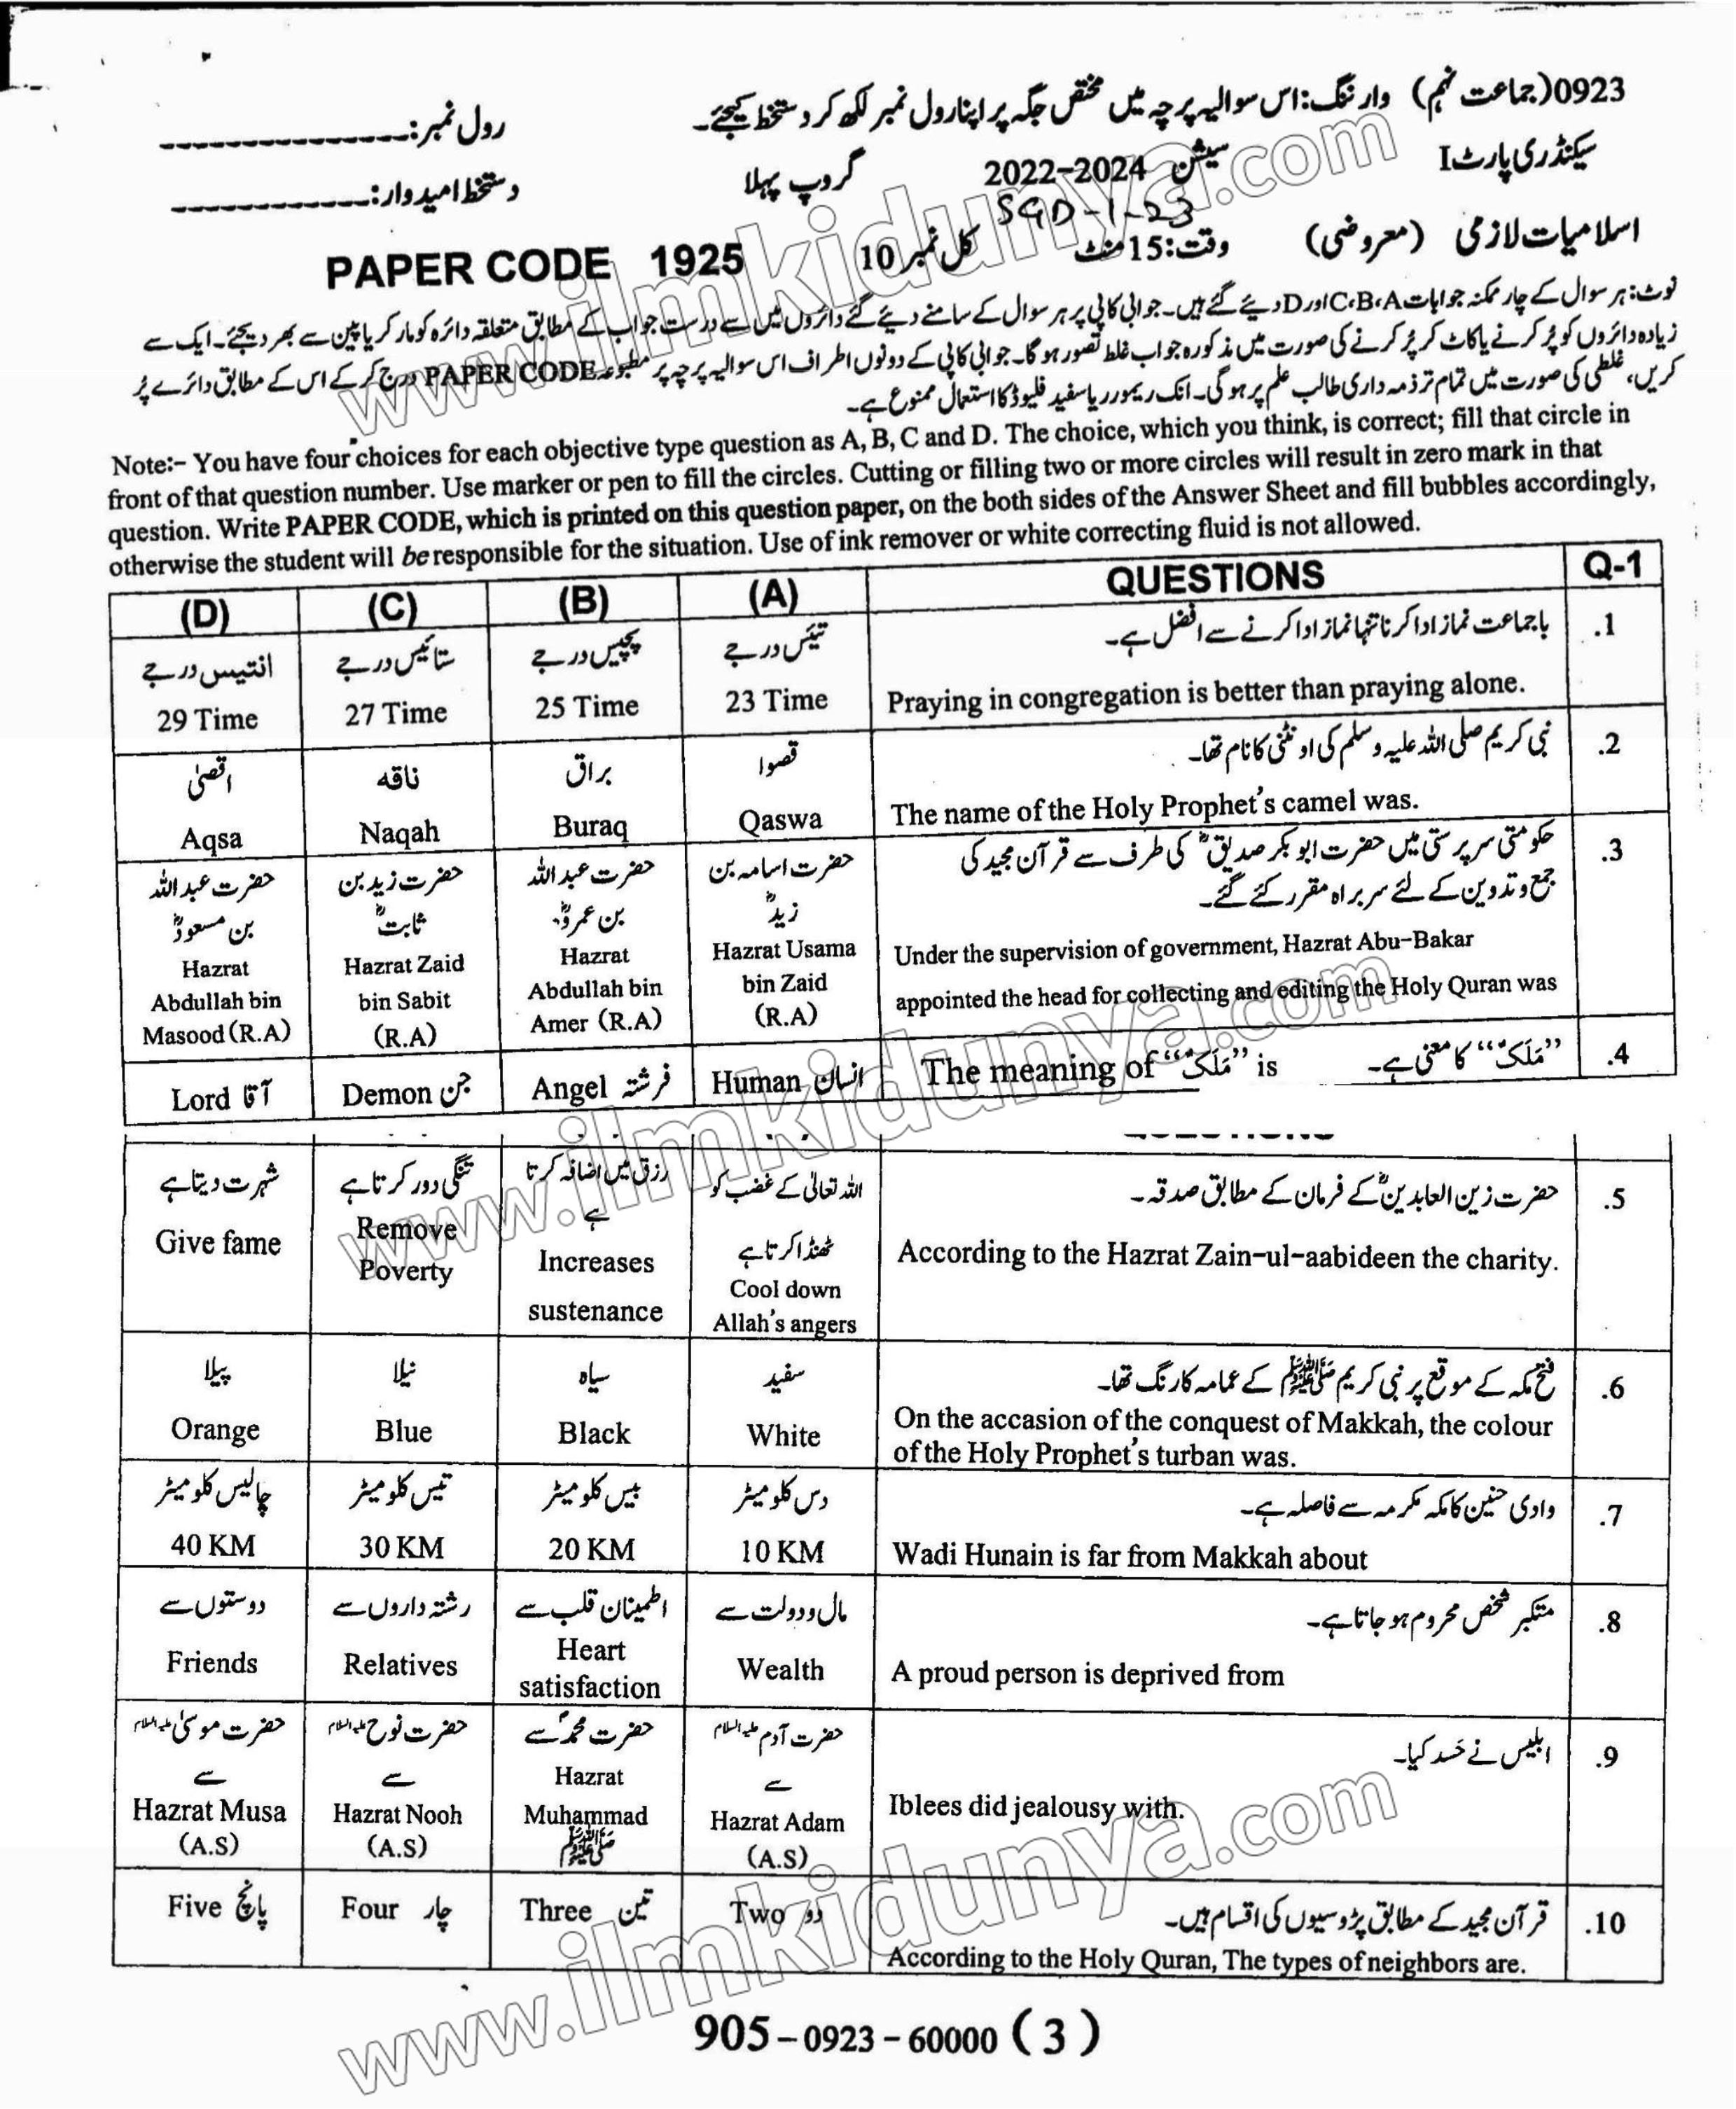 0923(جماعت نہم) وارننگ: اس سوالیہ پرچہ میں مختص جگہ پر اپنا رول نمبر لکھ کر دستخط کیجئے۔ رول نمبر:
سیکنڈری پارٹ I سیشن 2022-2024 گروپ پہلا دستخط امیدوار:
SGD-1-23
اسلامیات لازمی (معروضی) وقت: 15 منٹ کل نمبر 10 PAPER CODE 1925
نوٹ: ہر سوال کے چار ممکنہ جوابات A، B، C اور D دیئے گئے ہیں۔ جوابی کاپی پر ہر سوال کے سامنے دیئے گئے دائروں میں سے درست جواب کے مطابق متعلقہ دائرہ کو مارکر یا پین سے بھر دیجئے۔ ایک سے
زیادہ دائروں کو پُر کرنے یا کاٹ کر پُر کرنے کی صورت میں مذکورہ جواب غلط تصور ہو گا۔ جوابی کاپی کے دونوں اطراف اس سوالیہ پرچہ پر مطبوعہ PAPER CODE درج کر کے اس کے مطابق دائرے پُر
کریں، غلطی کی صورت میں تمام تر ذمہ داری طالب علم پر ہو گی۔ انک ریمور یا سفید فلیوڈ کا استعمال ممنوع ہے۔
Note:- You have four choices for each objective type question as A, B, C and D. The choice, which you think, is correct; fill that circle in
front of that question number. Use marker or pen to fill the circles. Cutting or filling two or more circles will result in zero mark in that
question. Write PAPER CODE, which is printed on this question paper, on the both sides of the Answer Sheet and fill bubbles accordingly,
otherwise the student will be responsible for the situation. Use of ink remover or white correcting fluid is not allowed.
(D) (C) (B) (A) QUESTIONS Q-1
.1 باجماعت نماز ادا کرنا تنہا نماز ادا کرنے سے افضل ہے۔
Praying in congregation is better than praying alone.
تئیس درجے
23 Time
پچیس درجے
25 Time
ستائیس درجے
27 Time
انتیس درجے
29 Time
.2 نبی کریم صلی اللہ علیہ وسلم کی اونٹنی کا نام تھا۔
The name of the Holy Prophet's camel was.
قصوا
Qaswa
براق
Buraq
ناقہ
Naqah
اقصیٰ
Aqsa
.3 حکومتی سرپرستی میں حضرت ابوبکر صدیقؓ کی طرف سے قرآن مجید کی
جمع و تدوین کے لئے سربراہ مقرر کئے گئے۔
Under the supervision of government, Hazrat Abu-Bakar
appointed the head for collecting and editing the Holy Quran was
حضرت اسامہ بن
زیدؓ
Hazrat Usama
bin Zaid
(R.A)
حضرت عبداللہ
بن عمروؓ
Hazrat
Abdullah bin
Amer (R.A)
حضرت زید بن
ثابتؓ
Hazrat Zaid
bin Sabit
(R.A)
حضرت عبداللہ
بن مسعودؓ
Hazrat
Abdullah bin
Masood (R.A)
.4 ”مَلَکٌ“ کا معنی ہے۔ The meaning of ”مَلَکٌ“ is
Human انسان
Angel فرشتہ
Demon جن
Lord آقا
.5 حضرت زین العابدینؓ کے فرمان کے مطابق صدقہ۔
According to the Hazrat Zain-ul-aabideen the charity.
اللہ تعالیٰ کے غضب کو
ٹھنڈا کرتا ہے
Cool down
Allah's angers
رزق میں اضافہ کرتا
ہے
Increases
sustenance
تنگی دور کرتا ہے
Remove
Poverty
شہرت دیتا ہے
Give fame
.6 فتح مکہ کے موقع پر نبی کریم ﷺ کے عمامہ کا رنگ تھا۔
On the accasion of the conquest of Makkah, the colour
of the Holy Prophet's turban was.
سفید
White
سیاہ
Black
نیلا
Blue
پیلا
Orange
.7 وادی حنین کا مکہ مکرمہ سے فاصلہ ہے۔
Wadi Hunain is far from Makkah about
دس کلومیٹر
10 KM
بیس کلومیٹر
20 KM
تیس کلومیٹر
30 KM
چالیس کلومیٹر
40 KM
.8 متکبر شخص محروم ہو جاتا ہے۔
A proud person is deprived from
مال و دولت سے
Wealth
اطمینان قلب سے
Heart
satisfaction
رشتہ داروں سے
Relatives
دوستوں سے
Friends
.9 ابلیس نے حَسد کیا۔
Iblees did jealousy with.
حضرت آدم علیہ السلام
سے
Hazrat Adam
(A.S)
حضرت محمدؐ سے
Hazrat
Muhammad
ﷺ
حضرت نوح علیہ السلام
سے
Hazrat Nooh
(A.S)
حضرت موسیٰ علیہ السلام
سے
Hazrat Musa
(A.S)
.10 قرآن مجید کے مطابق پڑوسیوں کی اقسام ہیں۔
According to the Holy Quran, The types of neighbors are.
Two دو
Three تین
Four چار
Five پانچ
905-0923-60000 (3)
www.ilmkidunya.com
www.ilmkidunya.com
www.ilmkidunya.com